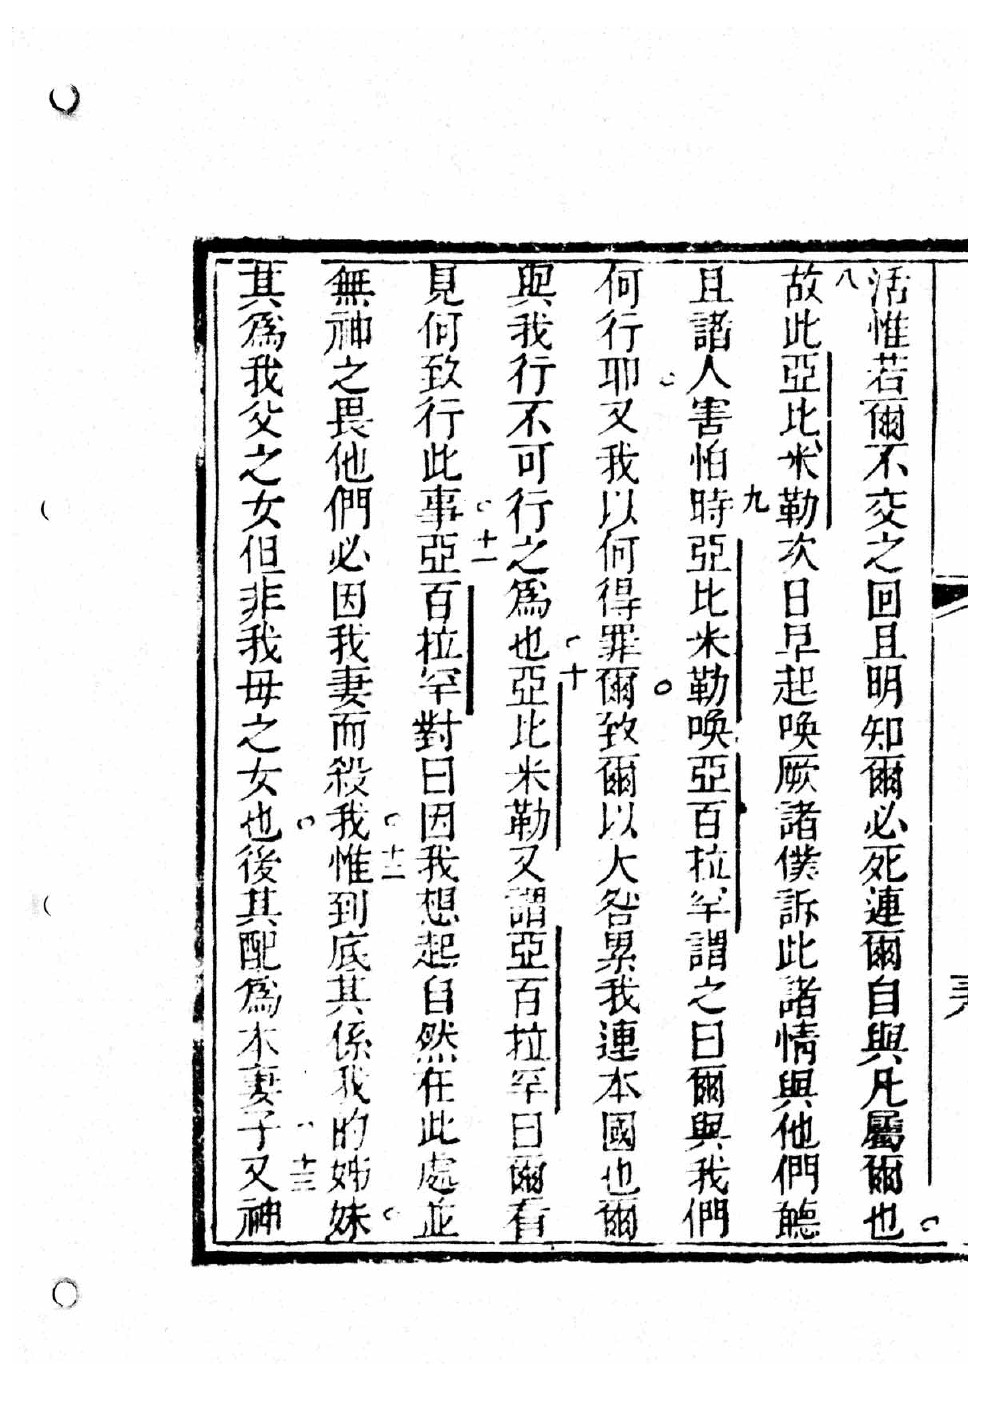 活惟若爾不交之回且明知爾必死連爾自與凡屬爾也。
八故此亞比米勒次日早起喚厥諸僕訴此諸情與他們聽
且諸人害怕時。九亞比米勒喚亞百拉罕謂之曰爾與我們
何行耶又我以何得罪爾。致爾以大咎累我連本國也爾
與我行不可行之為也。十亞比米勒又謂亞百拉罕曰爾有
見何致行此事。十一亞百拉罕對曰因我想起自然在此處並
無神之畏他們必因我妻而殺我。十二惟到底其係我的姊妹。
其爲我父之女但非我母之女也。後其配爲本妻子。十三又神